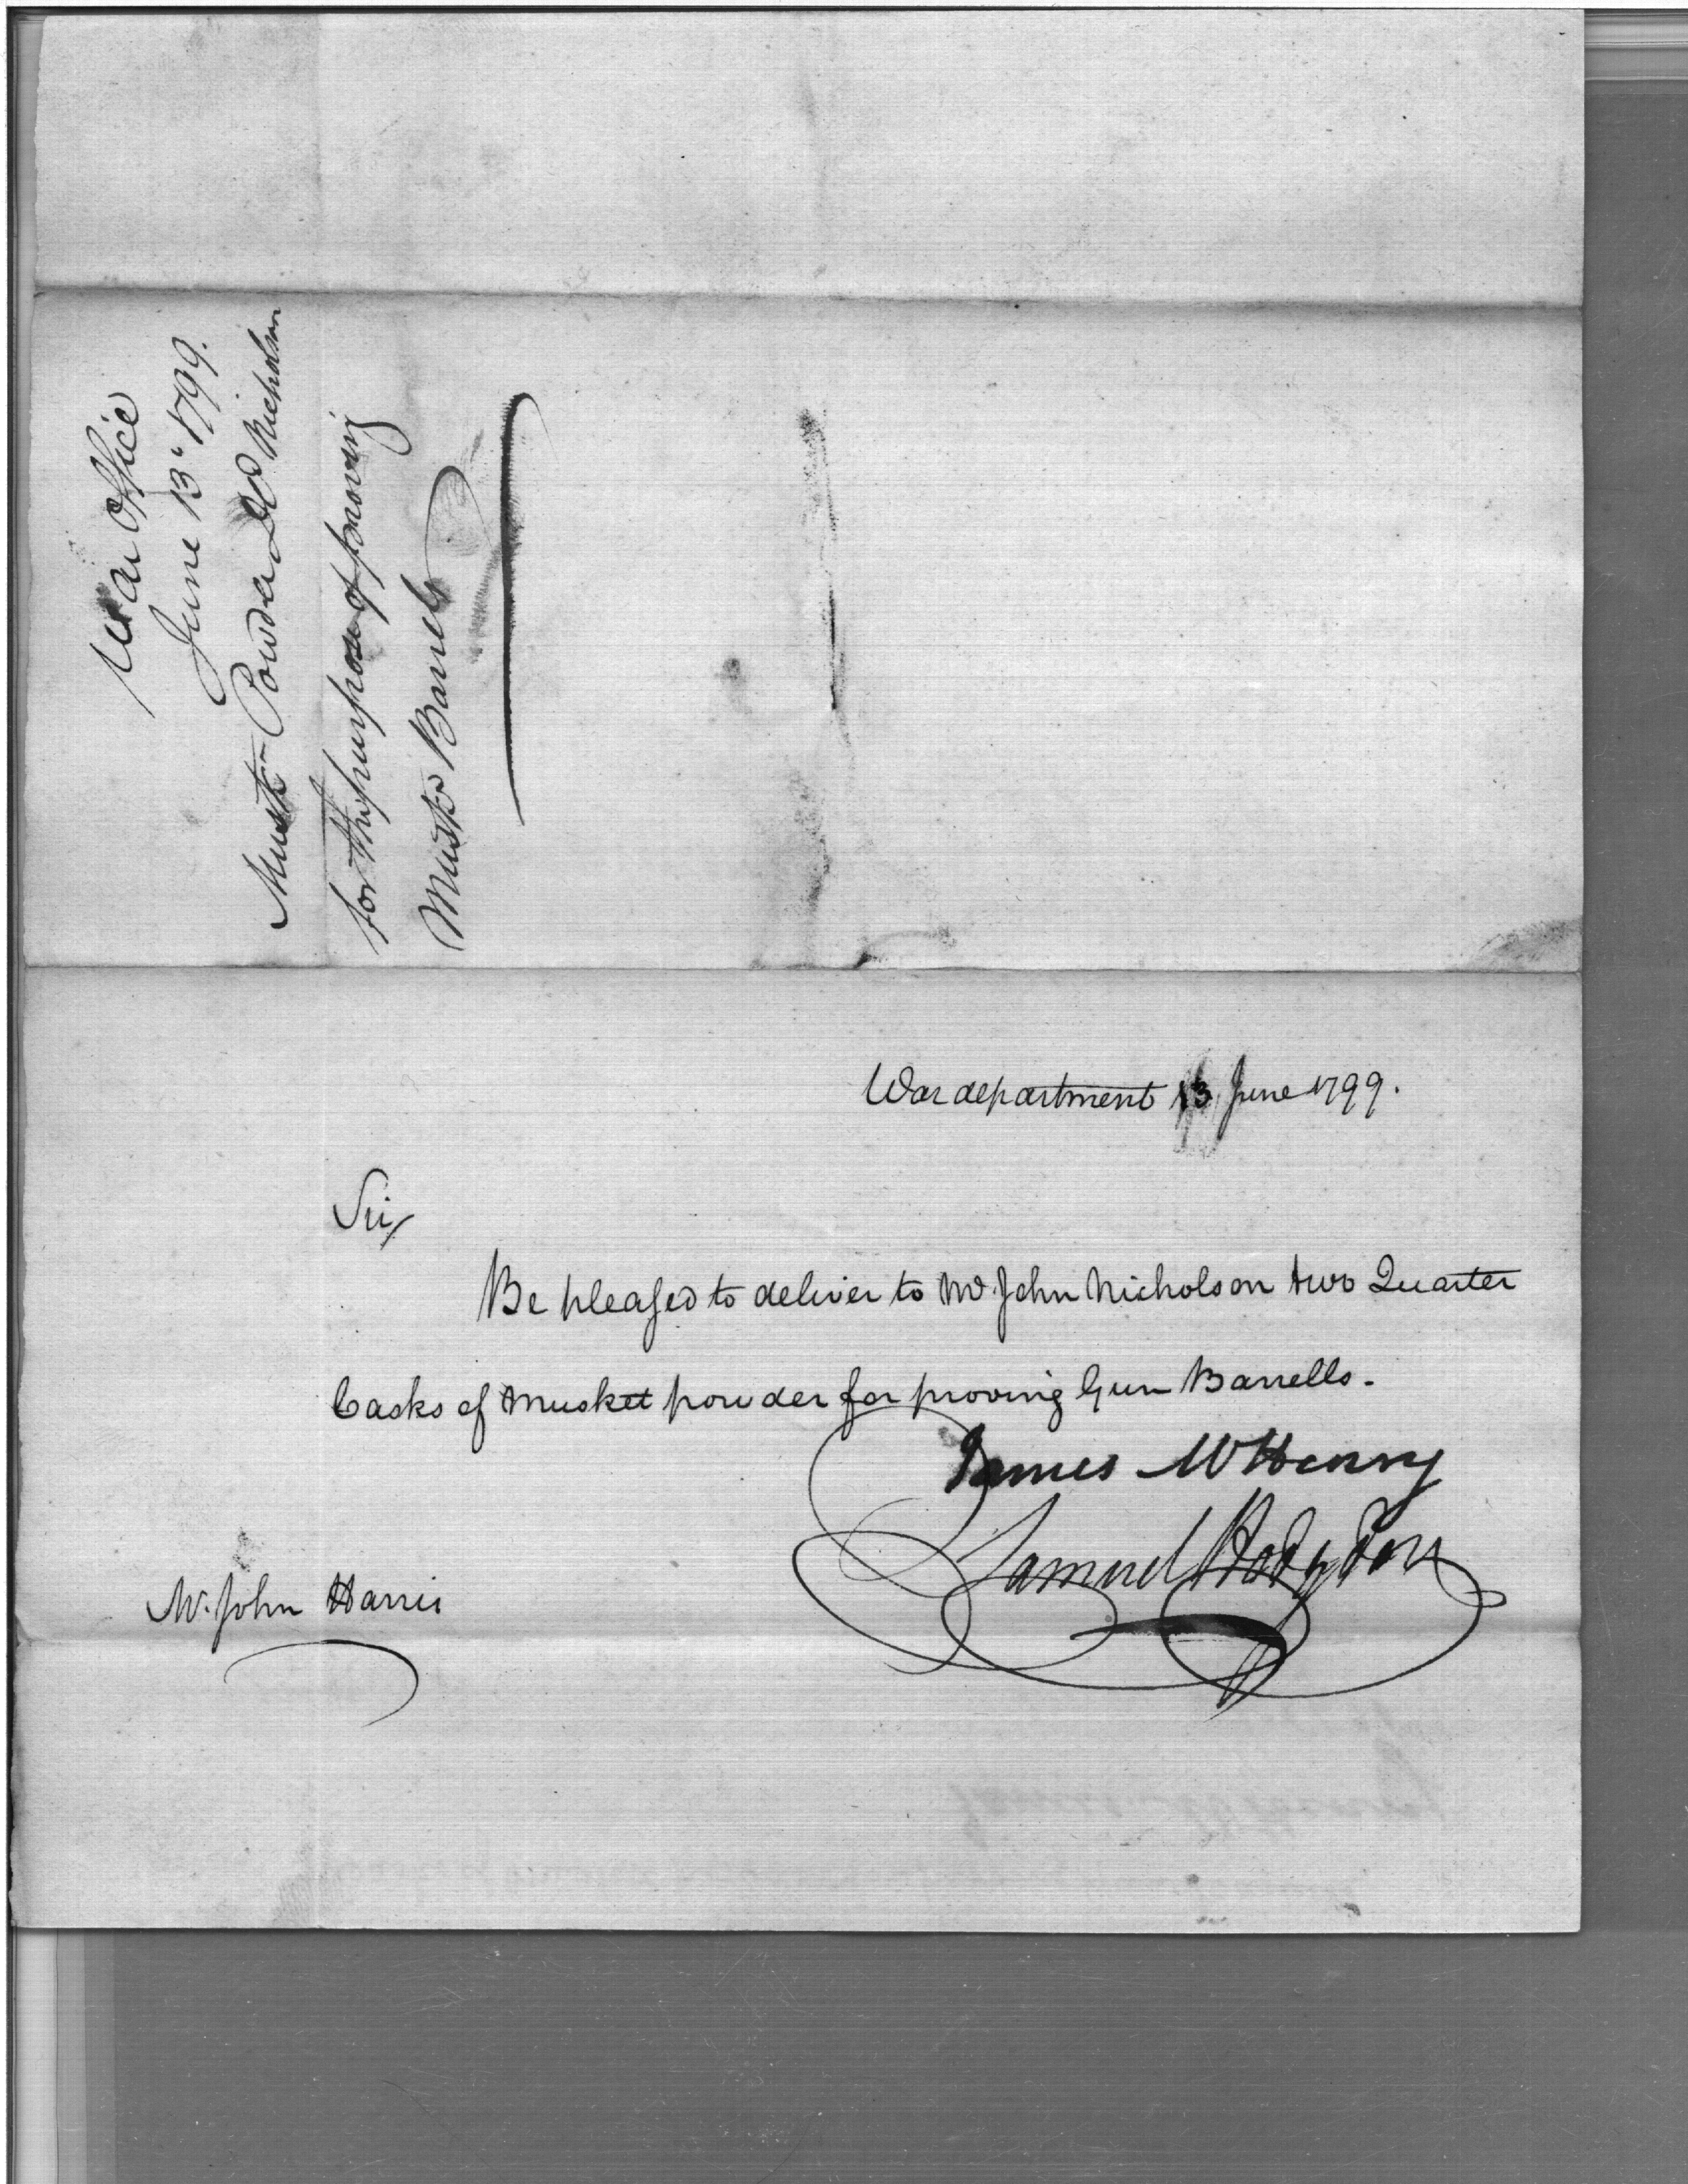 War Office
June 13" 1799.
Musk.t Powder Nicholson
for the purpose of proving
Musk.t Barrels
War department 13 June 1799.
Sir,
Be pleased to deliver to Mr. John Nicholson two Quarter
Casks of Musket powder for proving Gun Barrells.
James McHenry
Samuel Hodgdon
Mr. John Harris